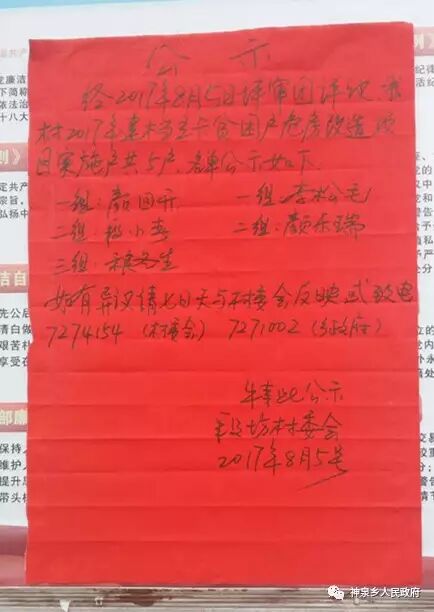 公示
经2017年8月5日评审团评议,我
村2017年建档立卡贫困户危房改造项
目实施户共5户,名单公示如下
一组:颜国开 一组:李松毛
二组:杨小春 二组:颜东瑞
三组:
如有异议请七日天与村委会反映或致电
7274154(村委会) 7271002(乡政府)
特此公示
段坊村委会
2017年8月5号
神泉乡人民政府